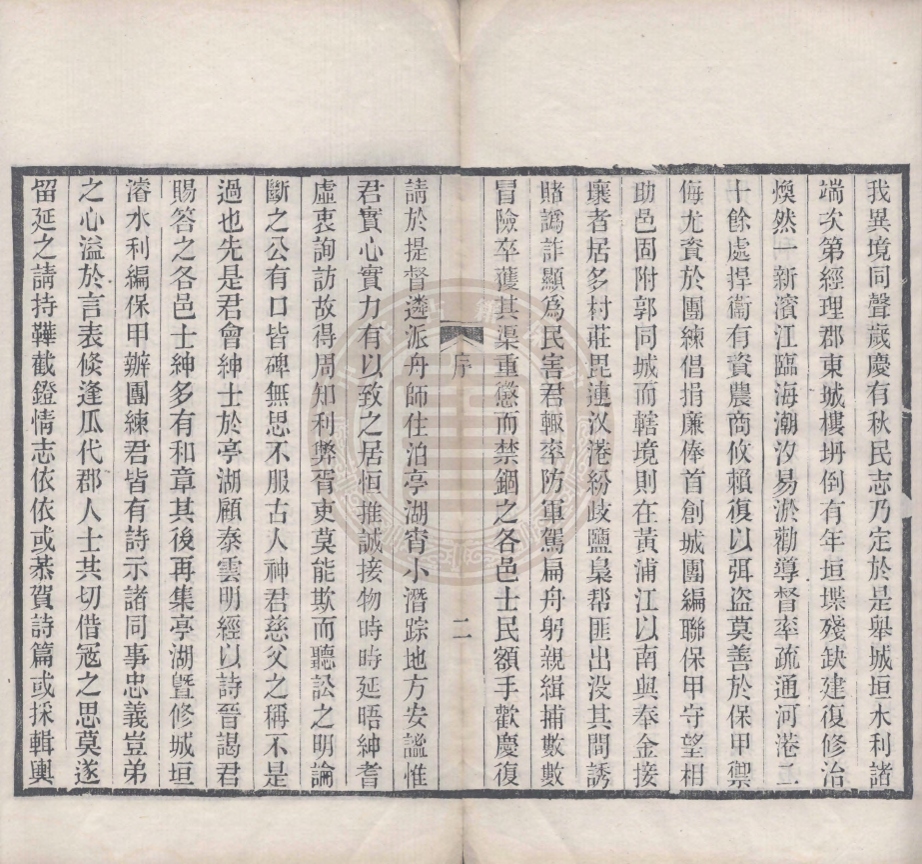 我異境同聲歲慶有秋民志乃定於是舉城垣水利諸
端次第經理郡東城樓坍倒有年垣堞殘缺建復修治
煥然一新濱江臨海潮汐易淤勸導督率疏通河港二
十餘處捍衞有資農商攸賴復以弭盗莫善於保甲禦
侮尤資於團練倡捐廉俸首創城團編聯保甲守望相
助邑固附郭同城而轄境則在黃浦江以南與奉金接
壤者居多村莊毘連汊港紛歧鹽梟帮匪出没其間誘
賭譌詐顯爲民害君輙率防軍駕扁舟躬親緝捕數數
冒險卒獲其渠重懲而禁錮之各邑士民額手歡慶復
序
二
請於提督遴派舟師住泊亭湖宵小潛踪地方安謐惟
君實心實力有以致之居恒推誠接物時時延晤紳耆
虛衷詢訪故得周知利弊胥吏莫能欺而聽訟之明論
斷之公有口皆碑無思不服古人神君慈父之稱不是
過也先是君會紳士於亭湖顧泰雲明經以詩晉謁君
賜答之各邑士紳多有和章其後再集亭湖曁修城垣
濬水利編保甲辦團練君皆有詩示諸同事忠義豈弟
之心溢於言表倏逢瓜代郡人士共切借冦之思莫遂
留延之請持鞾截鐙情志依依或恭賀詩篇或採輯輿